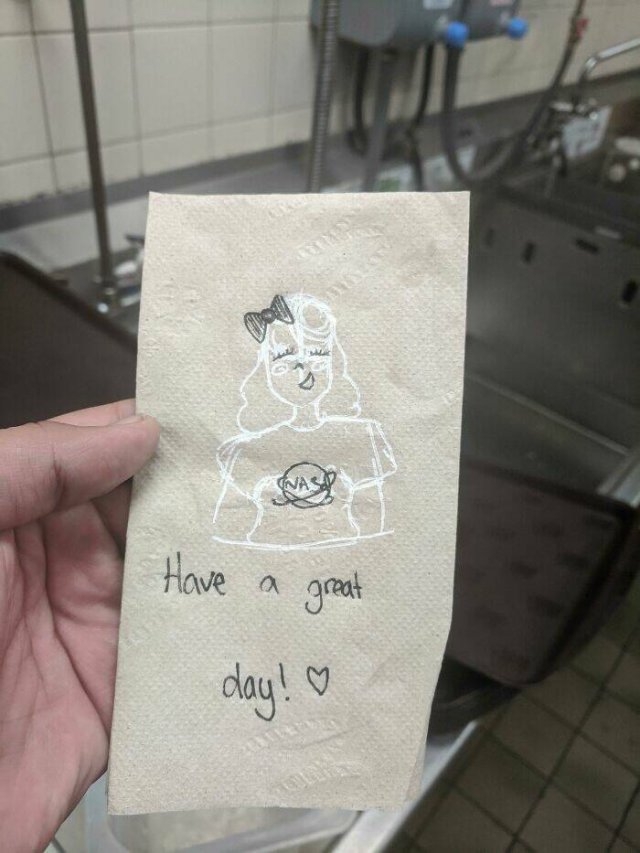 NASA
Have a great
day! ♡